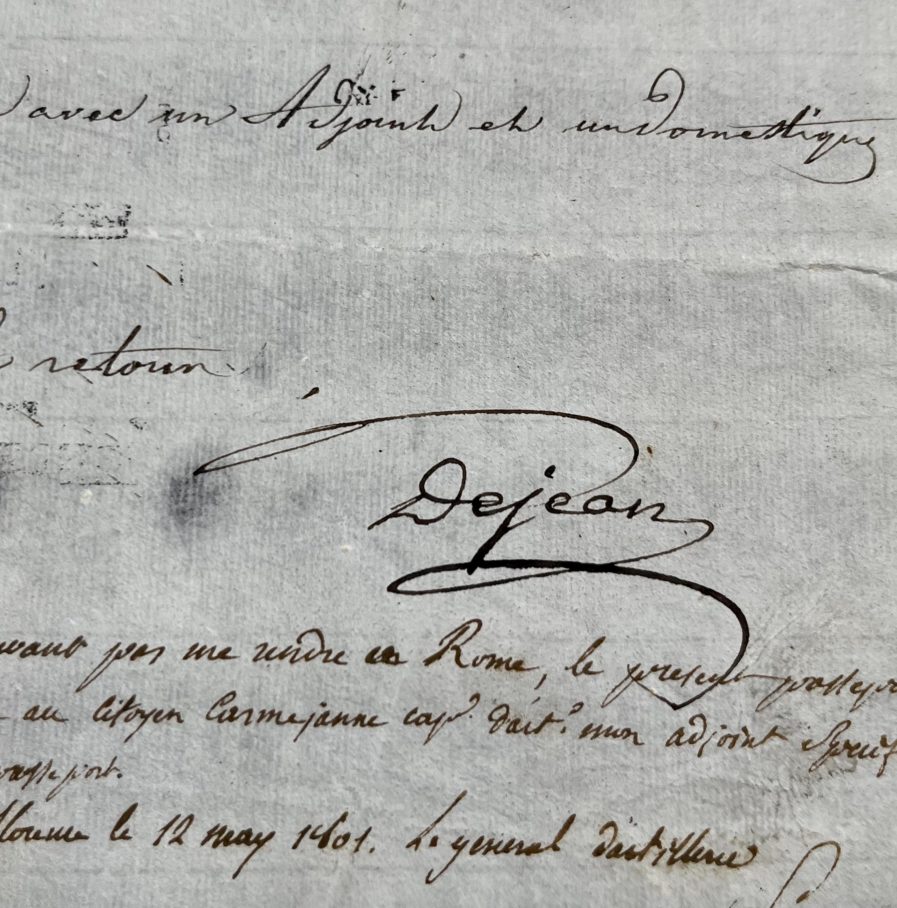 avec un Adjoint et un domestique
retour
Dejean
pas me rendre a Rome, le present
au citoyen Carmejanne cap.ⁿ d'art.ᵉ mon adjoint
passe port.
le 12 may 1801. Le general d'artillerie